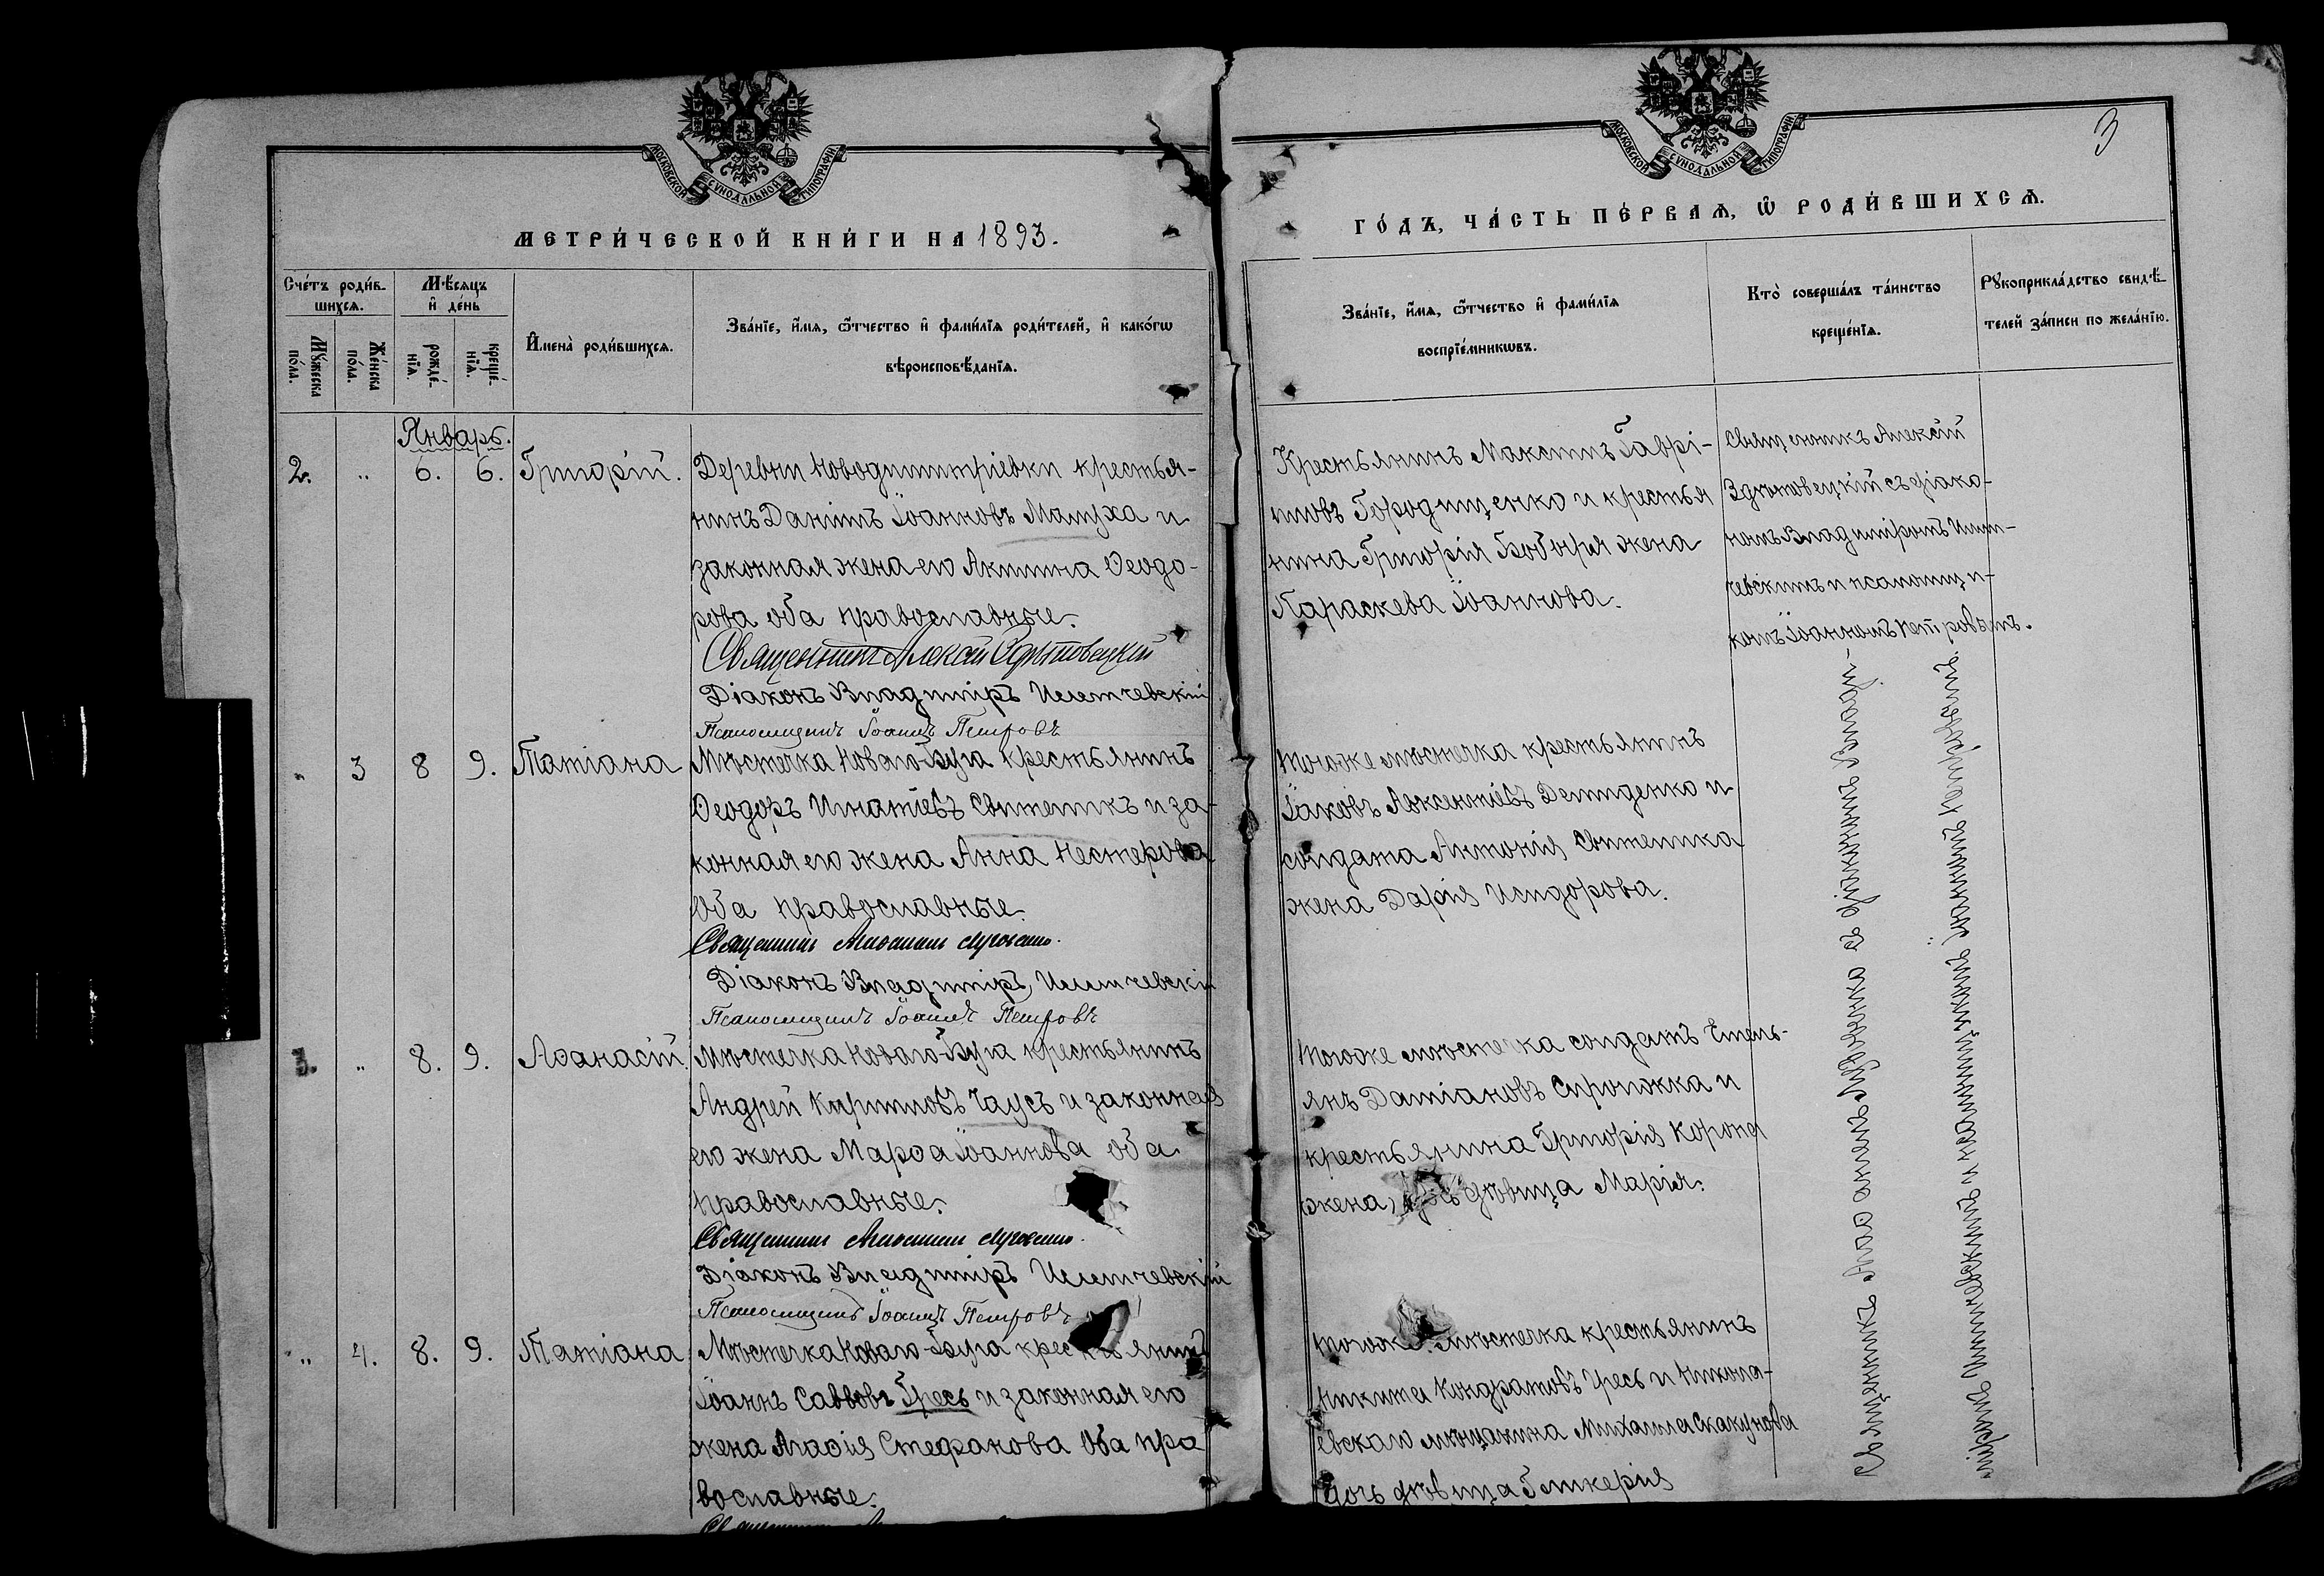 МОСКОВСКОЙ СѴНОДАЛЬНОЙ ТИПОГРАФІИ
МЕТРИ́ЧЕСКОЙ КНИ́ГИ НА 1893.
Сче́тъ роди́в-
шихсѧ.
Мѣ́сяцъ
и҆ де́нь
Мꙋ́жеска
по́ла.
Же́нска
по́ла.
рожде́-
нїѧ.
креще́-
нїѧ.
И҆мена̀ роди́вшихсѧ.
Зва́нїе, и҆́мѧ, ѻ҆́тчество и҆ фами́лїѧ роди́телей, и҆ како́гѡ
вѣроисповѣ́данїѧ.
Январь.
2. " 6. 6. Григорій.
Деревни Новодимитріевки крестья-
нинъ Даніилъ Іоанновъ Мамуха и
законная жена его Акилина Ѳеодо-
рова оба православные.
Священникъ Алексій
Діаконъ Владиміръ
Псаломщикъ Іоаннъ Петровъ
" 3 8 9. Татіана
Мѣстечка Новаго-Буга крестьянинъ
Ѳеодоръ Игнатіевъ Свитликъ и за-
конная его жена Анна Нестерова
оба православные.
Священникъ
Діаконъ Владиміръ
Псаломщикъ Іоаннъ Петровъ
3. " 8. 9. Аѳанасій.
Мѣстечка Новаго-Буга крестьянинъ
Андрей Кирилловъ Чаусъ и законная
его жена Марѳа Іоаннова оба
православные.
Священникъ
Діаконъ Владиміръ
Псаломщикъ Іоаннъ Петровъ
" 4. 8. 9. Татіана
Мѣстечка Новаго-Буга крестьянинъ
Іоаннъ Саввовъ Гресь и законная его
жена Агаѳія Стефанова оба пра
вославные.
МОСКОВСКОЙ СѴНОДАЛЬНОЙ ТИПОГРАФІИ
3
ГО́ДЪ, ЧА́СТЬ ПЕ́РВАѦ, Ѡ҆ РОДИ́ВШИХСѦ.
Зва́нїе, и҆́мѧ, ѻ҆́тчество и҆ фами́лїѧ
воспрїе́мникѡвъ.
Кто̀ соверша́лъ та́инство
креще́нїѧ.
Рꙋкоприкла́дство свидѣ́-
телей за́писи по жела́нїю.
Крестьянинъ Максимъ Гаврі-
иловъ Городищенко и крестья
нина Григорія Бобыря жена
Параскева Іоаннова.
Священникъ Алексій
съ діако-
номъ Владиміромъ
и псаломщи-
комъ Іоанномъ Петровымъ.
Тогоже мѣстечка крестьянинъ
Іаковъ Авксентіевъ Демиденко и
солдата Антонія Свитлика
жена Дарія Исидорова.
Тогоже мѣстечка солдатъ Емель-
янъ Даміановъ и
крестьянина Григорія
дѣвица Марія.
Тогоже мѣстечка крестьянинъ
Никита Кондратовъ Гресь и Никола-
евскаго мѣщанина Михаила Скакунова
дочь дѣвица Гликерія
Священникъ съ діакономъ
и псаломщикомъ Іоанномъ Петровымъ.